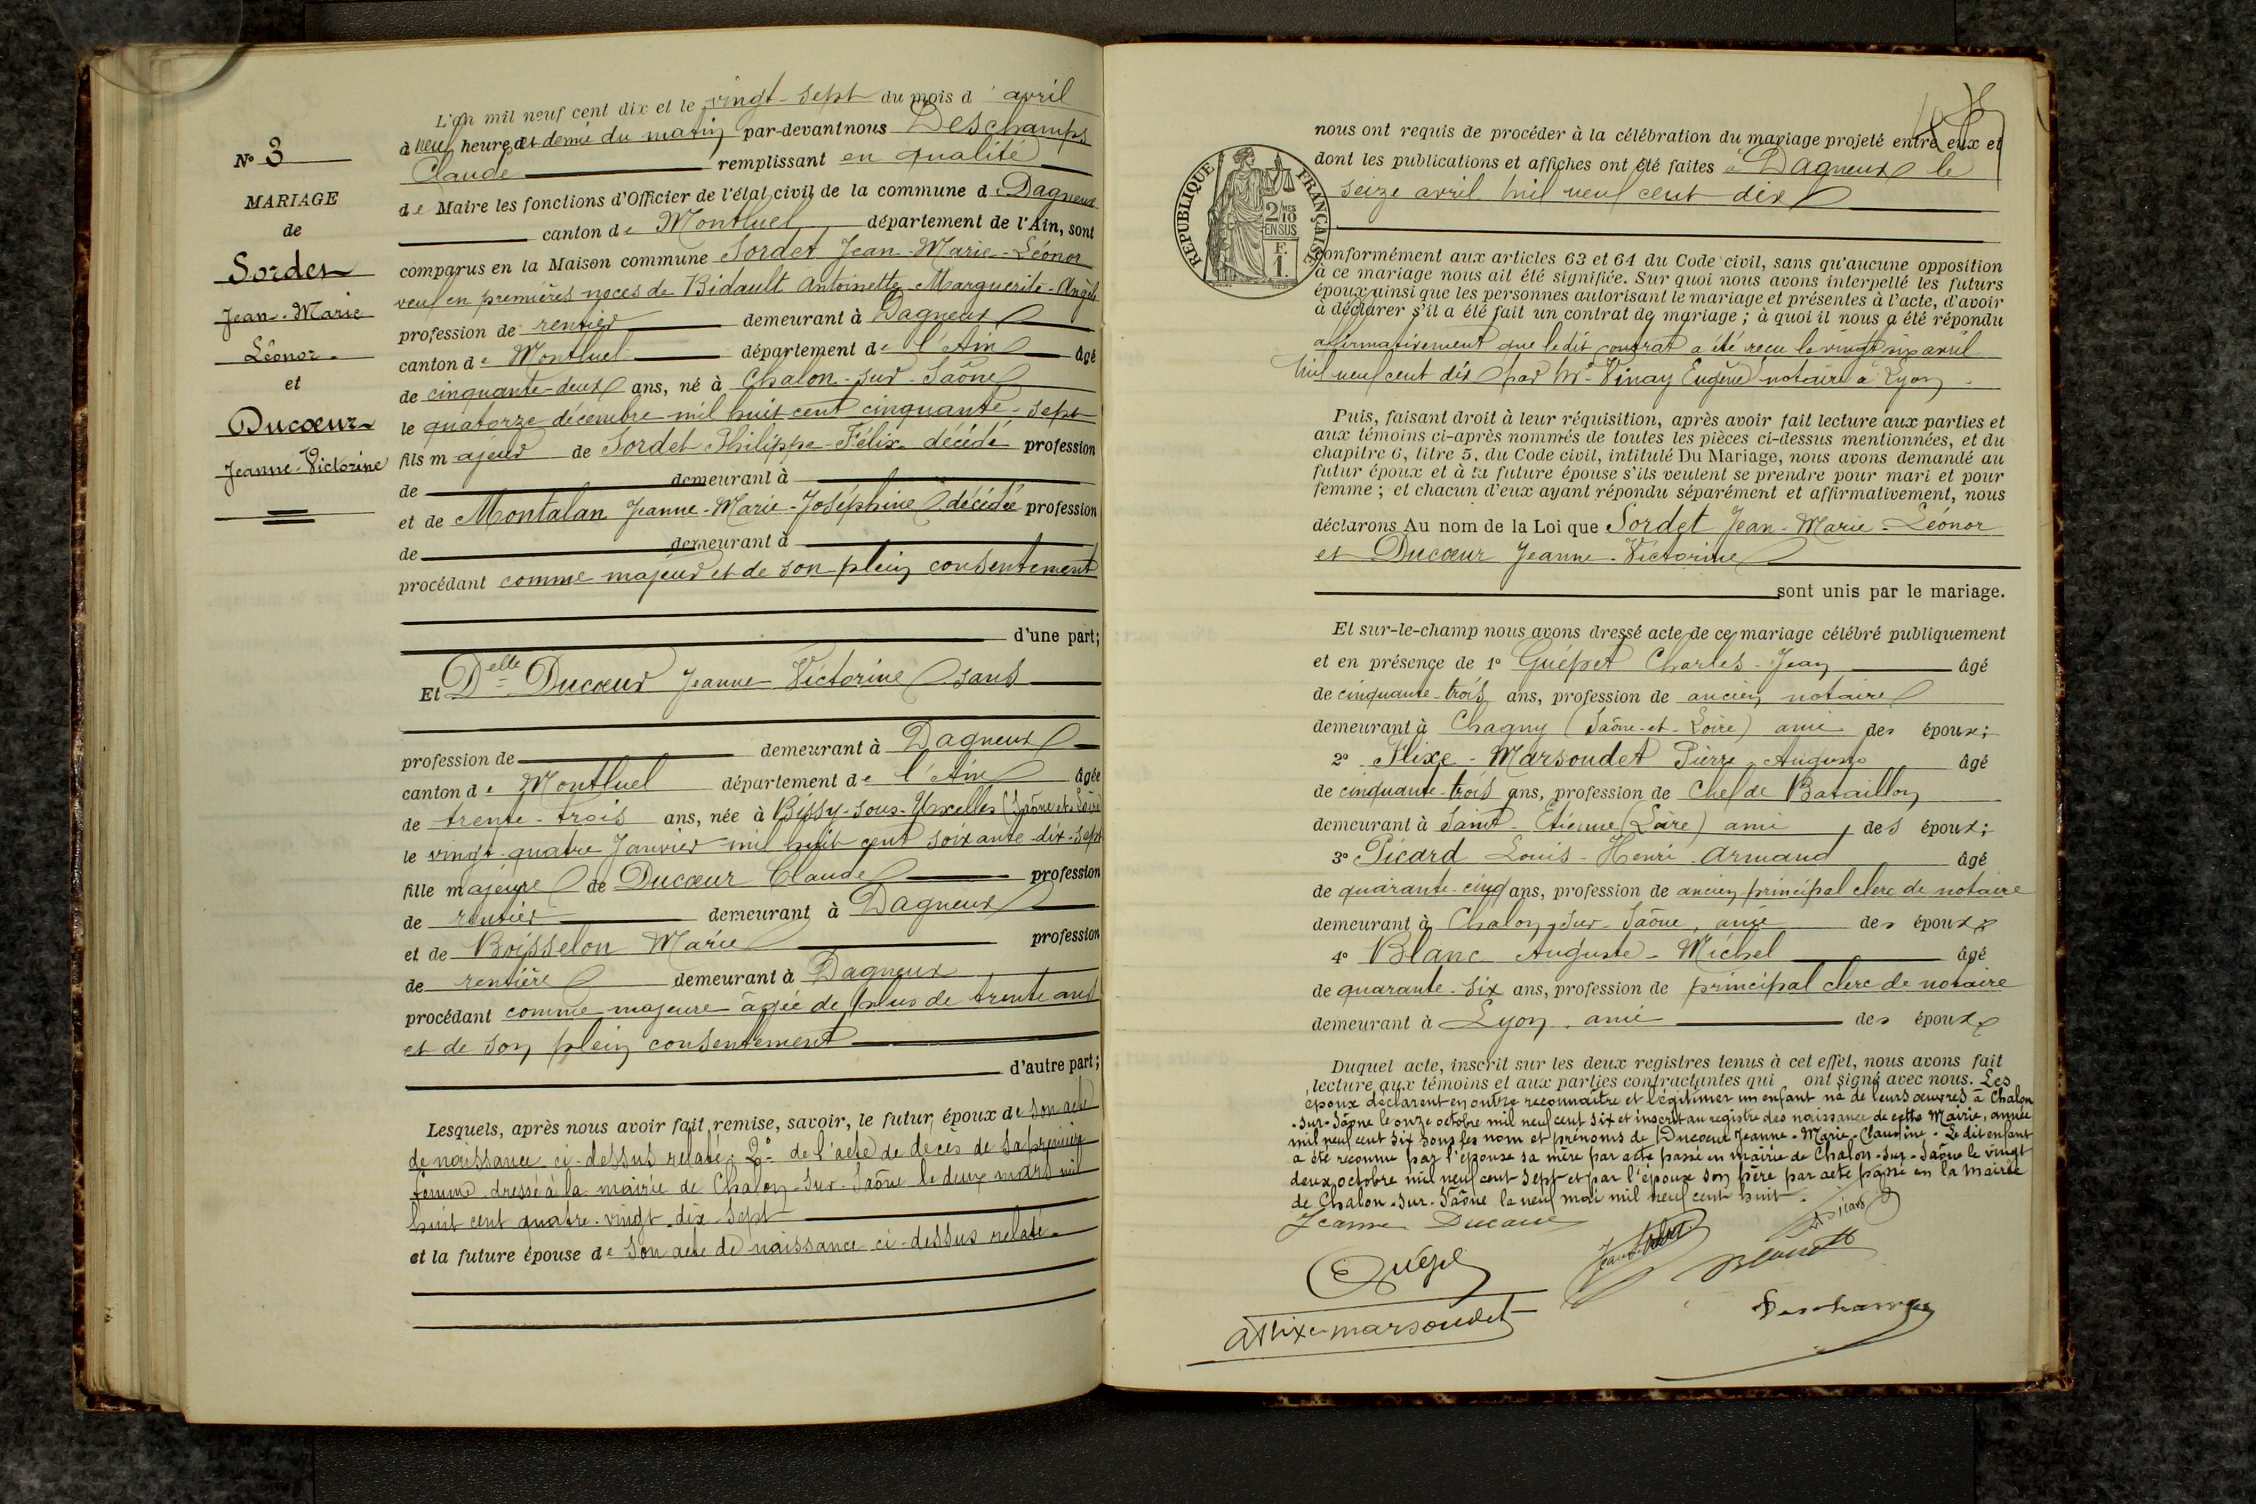 N° 3
MARIAGE
de
Sordet
Jean-Marie
Léonor
et
Ducœur
Jeanne-Victorine
L'an mil neuf cent dix et le vingt-sept du mois d'avril
à neuf heures et demie du matin par-devant nous Deschamps
Claude remplissant en qualité
de Maire les fonctions d'Officier de l'état civil de la commune de Dagneux
canton de Montluel département de l'Ain, sont
comparus en la Maison commune Sordet Jean-Marie-Léonor
veuf en premières noces de Bidault Antoinette-Marguerite-Angèle
profession de rentier demeurant à Dagneux
canton de Montluel département de l'Ain âgé
de cinquante-deux ans, né à Chalon-sur-Saône
le quatorze décembre mil huit cent cinquante-sept
fils majeur de Sordet Philippe-Félix décédé profession
de demeurant à
et de Montalan Jeanne-Marie-Joséphine décédée profession
de demeurant à
procédant comme majeur et de son plein consentement
d'une part;
Et Delle Ducœur Jeanne-Victorine sans
profession de demeurant à Dagneux
canton de Montluel département de l'Ain âgée
de trente-trois ans, née à Bissy-sous-Uxelles (Saône et Loire)
le vingt-quatre Janvier mil huit cent soixante-dix-sept
fille majeure de Ducœur Claude profession
de rentier demeurant à Dagneux
et de Boisselon Marie profession
de rentière demeurant à Dagneux
procédant comme majeure âgée de plus de trente ans
et de son plein consentement
d'autre part;
Lesquels, après nous avoir fait remise, savoir, le futur époux de son acte
de naissance ci-dessus relaté; 2° de l'acte de décès de sa première
femme dressé à la mairie de Chalon-sur-Saône le deux mars mil
huit cent quatre-vingt-dix-sept
et la future épouse de son acte de naissance ci-dessus relaté.
REPUBLIQUE FRANÇAISE
2/10MES
EN SUS
F.
1.
nous ont requis de procéder à la célébration du mariage projeté entre eux et
dont les publications et affiches ont été faites à Dagneux le
seize avril mil neuf cent dix
Conformément aux articles 63 et 64 du Code civil, sans qu'aucune opposition
à ce mariage nous ait été signifiée. Sur quoi nous avons interpellé les futurs
époux ainsi que les personnes autorisant le mariage et présentes à l'acte, d'avoir
à déclarer s'il a été fait un contrat de mariage; à quoi il nous a été répondu
affirmativement que le dit contrat a été reçu le vingt six avril
mil neuf cent dix par Me Vinay Eugène notaire à Lyon.
Puis, faisant droit à leur réquisition, après avoir fait lecture aux parties et
aux témoins ci-après nommés de toutes les pièces ci-dessus mentionnées, et du
chapitre 6, titre 5, du Code civil, intitulé Du Mariage, nous avons demandé au
futur époux et à la future épouse s'ils veulent se prendre pour mari et pour
femme; et chacun d'eux ayant répondu séparément et affirmativement, nous
déclarons Au nom de la Loi que Sordet Jean-Marie-Léonor
et Ducœur Jeanne-Victorine
sont unis par le mariage.
Et sur-le-champ nous avons dressé acte de ce mariage célébré publiquement
et en présence de 1° Guépet Charles-Jean âgé
de cinquante-trois ans, profession de ancien notaire
demeurant à Chagny (Saône-et-Loire) ami des époux;
2° Flixe-Marsoudet Pierre-Auguste âgé
de cinquante-trois ans, profession de Chef de Bataillon
demeurant à Saint-Etienne (Loire) ami des époux;
3° Picard Louis-Henri-Armand âgé
de quarante-cinq ans, profession de ancien principal clerc de notaire
demeurant à Chalon-sur-Saône, ami des époux
4° Blanc Auguste-Michel âgé
de quarante-six ans, profession de principal clerc de notaire
demeurant à Lyon, ami des époux
Duquel acte, inscrit sur les deux registres tenus à cet effet, nous avons fait
lecture aux témoins et aux parties contractantes qui ont signé avec nous. Les
époux déclarent en outre reconnaître et légitimer un enfant né de leurs œuvres à Chalon
-sur-Saône le onze octobre mil neuf cent six et inscrit au registre des naissances de cette Mairie, année
mil neuf cent six sous les nom et prénoms de Ducœur Jeanne-Marie-Claudine. Le dit enfant
a été reconnu par l'épouse sa mère par acte passé en mairie de Chalon-sur-Saône le vingt
deux octobre mil neuf cent sept et par l'époux son père par acte passé en la mairie
de Chalon-sur-Saône le neuf mai mil neuf cent huit.
Jeanne Ducœur
Picard
Deschamps